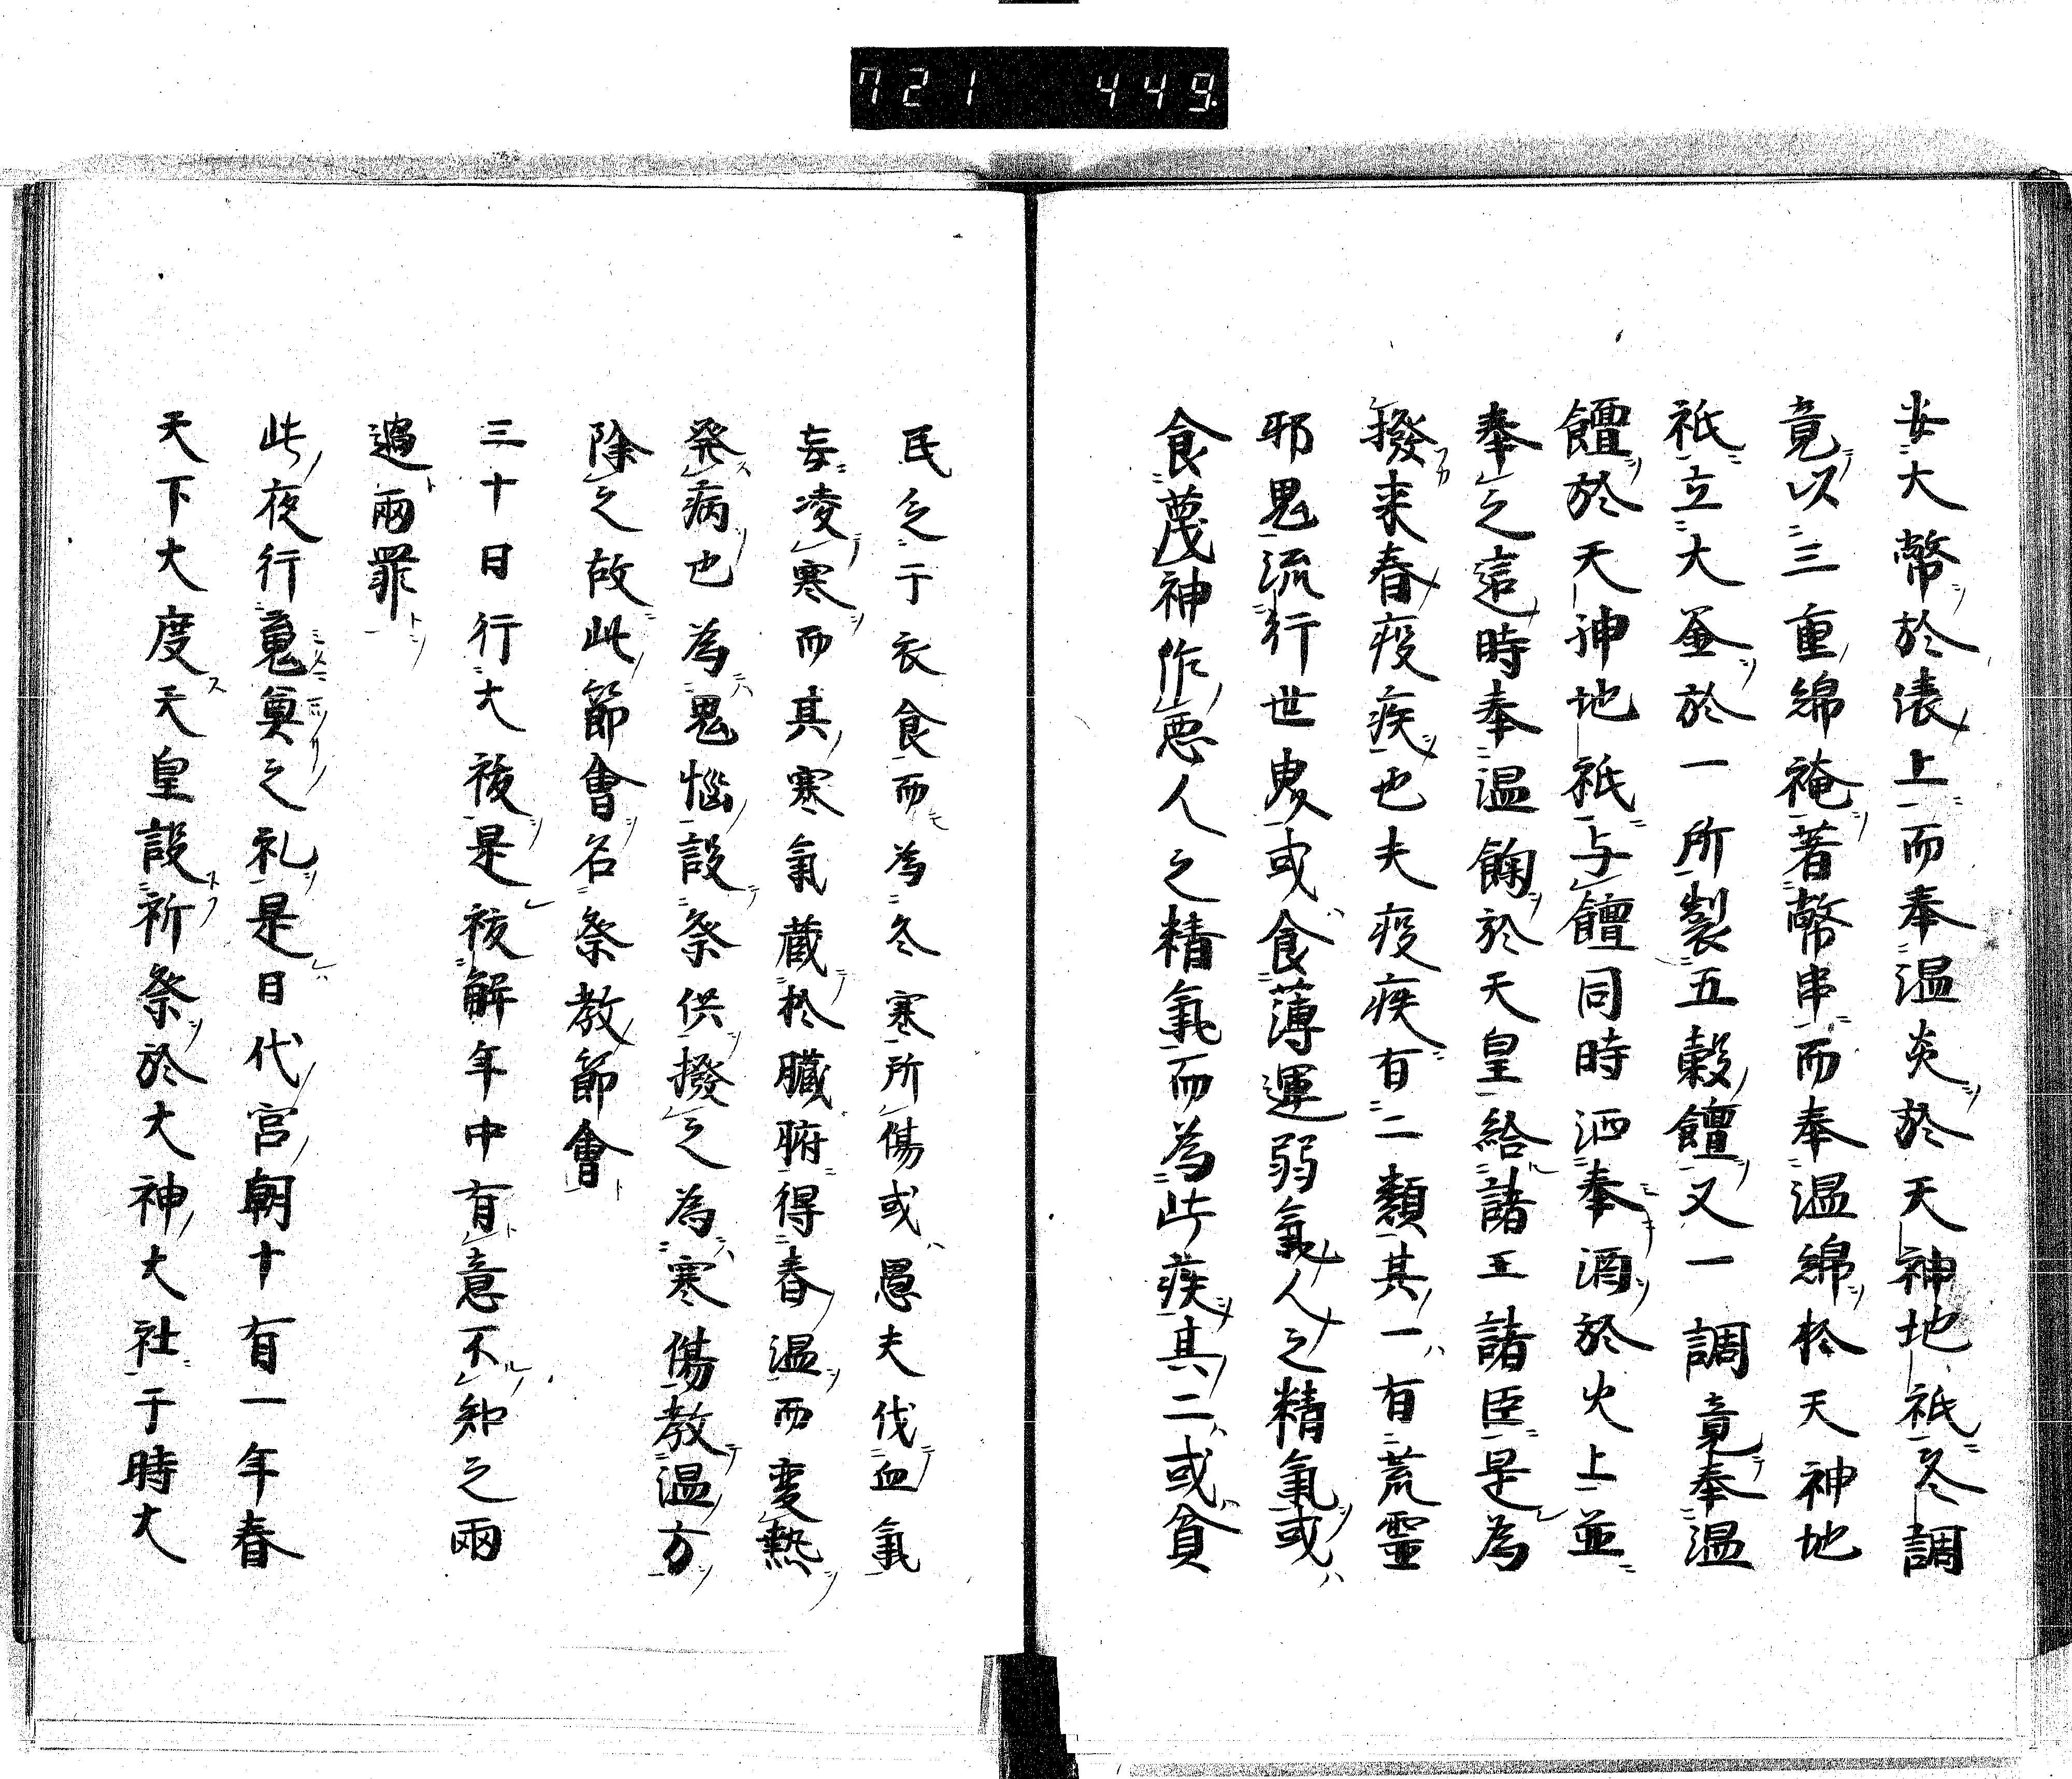 721 449
安大幣於俵上而奉温炎於天神地祇冬調
竟以三重綿裺著幣串而奉温綿於天神地
祇立大釜於一所製五穀饘又一調竟奉温
饘於天神地祇与饘同時洒奉酒於火上並
奉之這時奉温餉於天皇給諸王諸臣是為
撥来春疫疾也夫疫疾有二類其一有荒靈
邪鬼流行世叟或食薄運弱氣人之精氣或
食蔑神作悪人之精氣而為此疾其二或貧
民乏于衣食而為冬寒所傷或愚夫伐血氣
妄凌寒而其寒氣蔵於臓腑得春温而变熱
発病也為鬼惱設祭供撥之為寒傷教温方
除之故此節會名祭教節會
三十日行大祓是祓解年中有意不知之兩
過兩罪
此夜行䰟奠之礼是日代宮朝十有一年春
天下大度天皇設祈祭於大神大社于時大